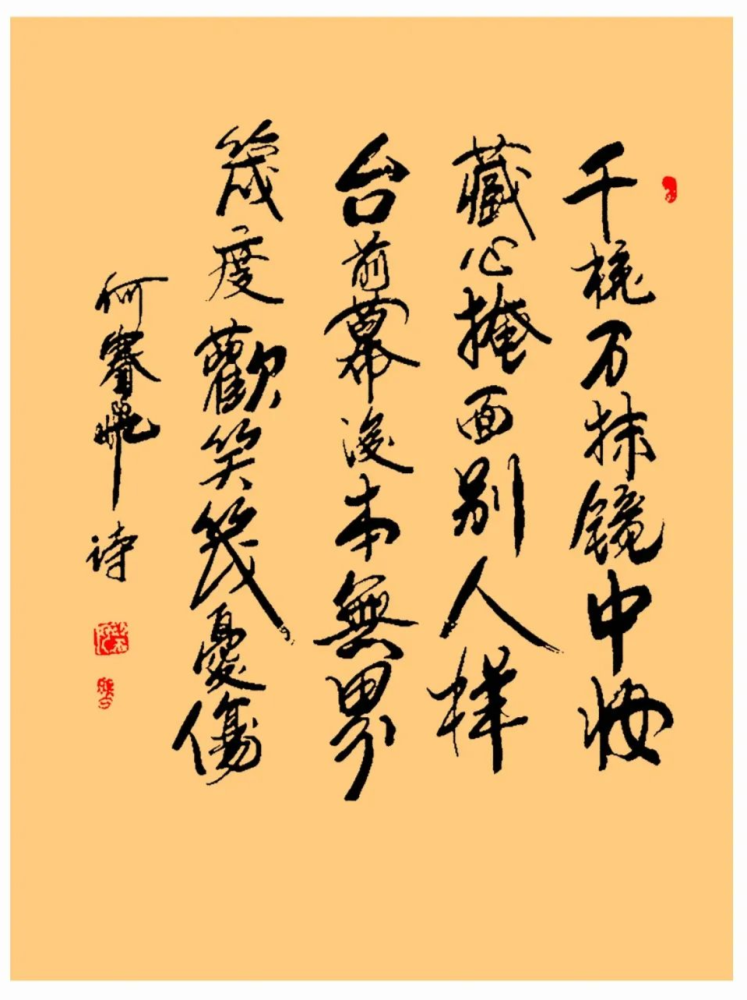 千梳万抹镜中妆
藏心掩面别人样
台前幕後本無界
幾度歡笑幾憂傷
何诗